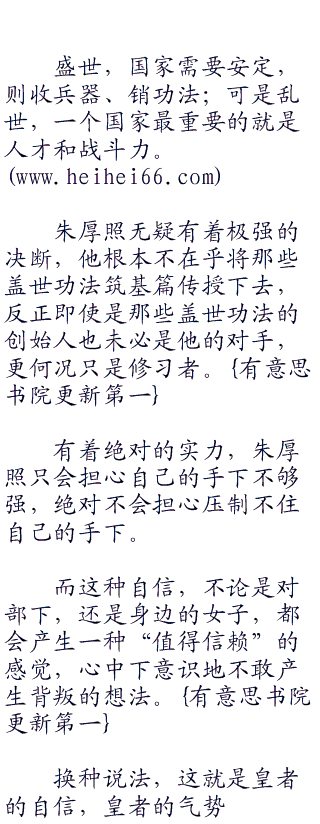 盛世，国家需要安定，
则收兵器、销功法；可是乱
世，一个国家最重要的就是
人才和战斗力。
(www.heihei66.com)
朱厚照无疑有着极强的
决断，他根本不在乎将那些
盖世功法筑基篇传授下去，
反正即使是那些盖世功法的
创始人也未必是他的对手，
更何况只是修习者。{有意思
书院更新第一}
有着绝对的实力，朱厚
照只会担心自己的手下不够
强，绝对不会担心压制不住
自己的手下。
而这种自信，不论是对
部下，还是身边的女子，都
会产生一种“值得信赖”的
感觉，心中下意识地不敢产
生背叛的想法。{有意思书院
更新第一}
换种说法，这就是皇者
的自信，皇者的气势